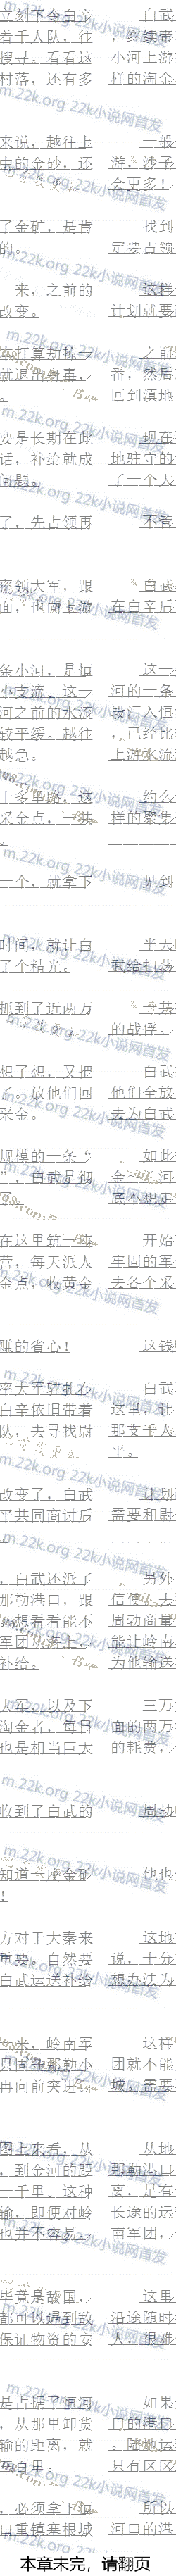 立刻下令白辛 白武
着千人队，往 ，继续带
搜寻。看看这 小河上游
村落，还有多 样的淘金
来说，越往上 一般
中的金砂，还 游，沙子
会更多！
了金矿，是肯 找到
的。 定要占领
一来，之前的 这样
改变。 计划就要
本打算劫掠一 之前
就退出身毒， 番，然后
。 回到滇地
要是长期在此 现在
话，补给就成 地驻守的
问题。 了一个大
了，先占领再 不管
率领大军，跟 白武
面，也向上游 在白辛后
条小河，是恒 这一
小支流。这一 河的一条
河之前的水流 段汇入恒
较平缓。越往 ，已经比
越急。 上游水流
十多里路，这 约么
采金点，一共 样的聚集
。
一个，就拿下 见到
时间，就让白 半天
了个精光。 武给扫荡
抓到了近两万 一共
的战俘。
想了想，又把 白武
了。放他们回 他们全放
采金。 去为白武
规模的一条“ 如此
”，白武是彻 金
底不想走
在这里筑一座 开始
营，每天派人 牢固的军
金点，收黄金 去各个采
赚的省心！ 这钱
率大军驻扎在 白武
白辛依旧带着 这里，让
队，去寻找尉 那支千人
平。
改变了，白武 计划
平共同商讨后 需要和尉
，白武还派了 另外
那勒港口，跟 信使，去
，想看看能不 周勃商量
军团从海上， 能让岭南
补给。 为他输送
大军，以及下 三万
淘金者，每日 面的两万
也是相当巨大 的耗费，
收到了白武的 周勃
知道一座金矿 他也
！
方对于大秦来 这地
重要。自然要 说，十分
白武运送补给 想办法为
一来，岭南军 这样
只固守那勒小 团就不能
再向前突进。 城。需要
图上来看，从 从地
，到金河的距 那勒港口
一千里。这种 离，足有
输，即便对岭 长途的运
也并不容易。 南军团，
毕竟是敌国， 这里
都可以遇到敌 沿途随时
保证物资的安 人，很难
是占据了恒河 如果
，从那里卸货 口的港口
输的距离，就 。陆地运
百里。 只有区区
，必须拿下恒 所以
口重镇寨根城 河口的港
本章未完，请翻页